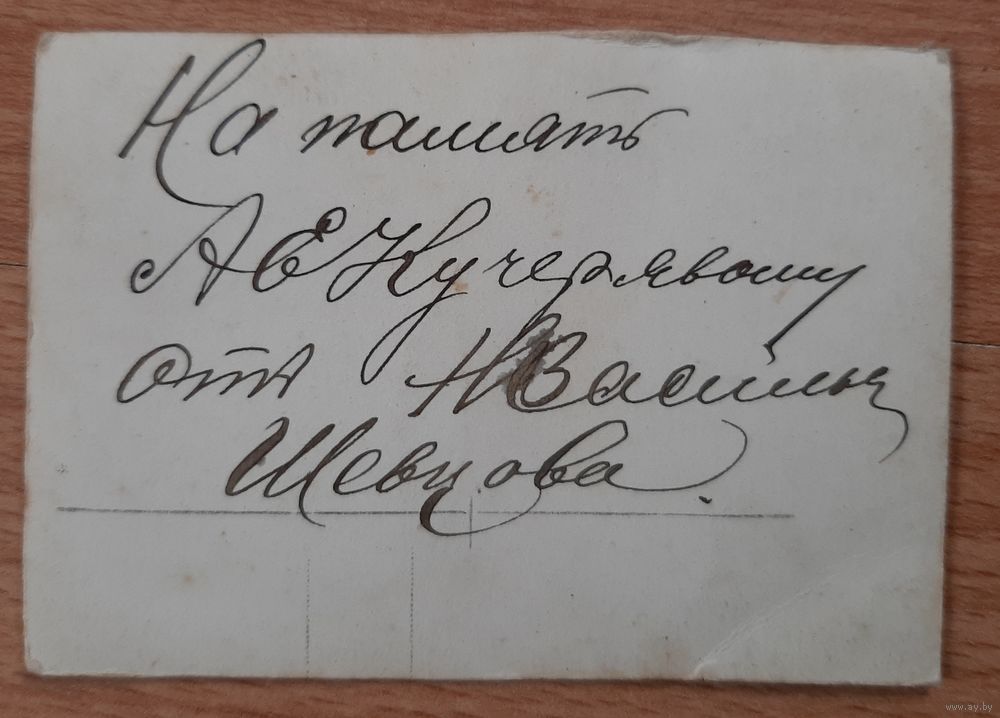 На память
А Е Кучерявому
отъ Н Васильы
Шевцова.
www.ay.by